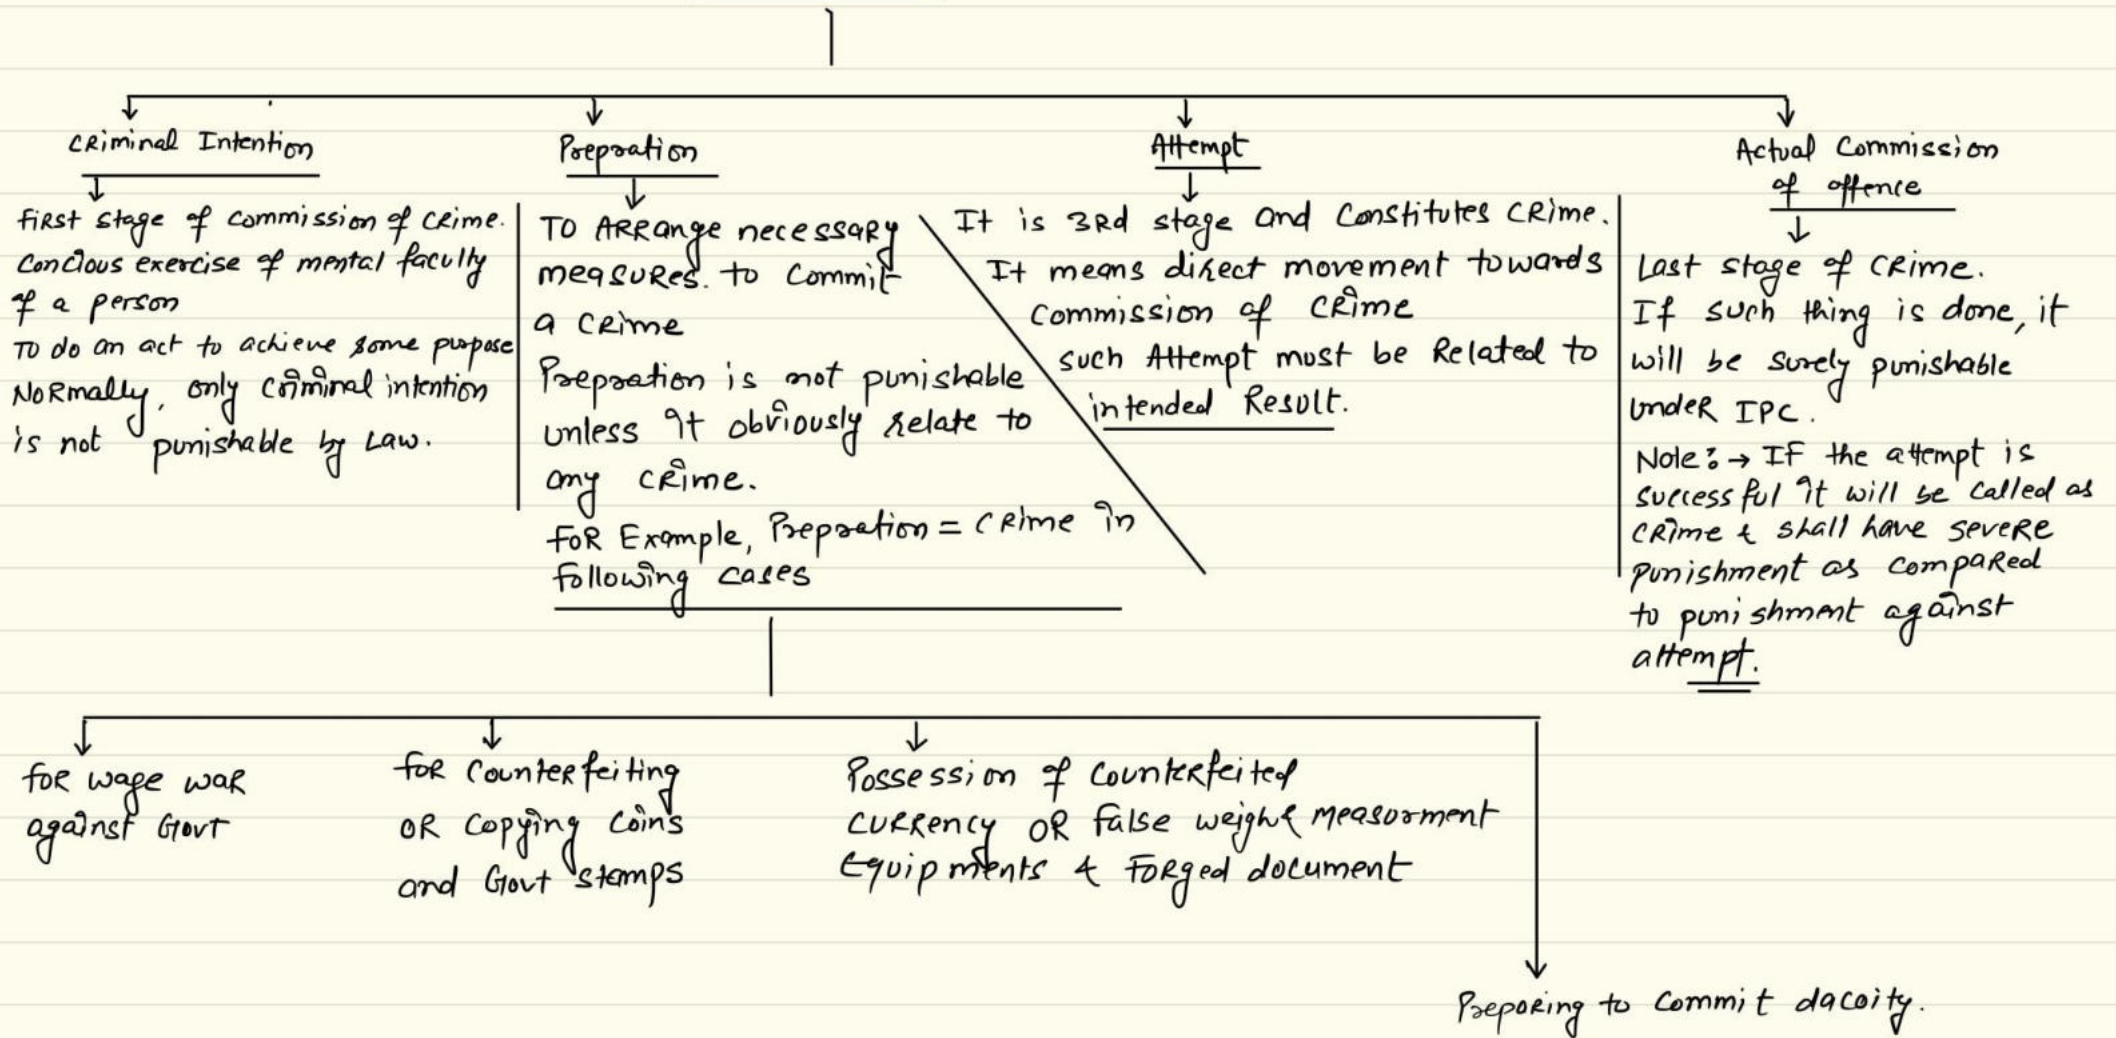 Criminal Intention
first stage of commission of crime.
Concious exercise of mental faculty
of a person
To do an act to achieve some purpose
Normally, only criminal intention
is not punishable by Law.
Prepration
To Arrange necessary
measures. to Commit
a crime
Prepration is not punishable
unless it obviously relate to
any crime.
For Example, Prepration = Crime in
following cases
Attempt
It is 3rd stage and Constitutes Crime.
It means direct movement towards
Commission of Crime
such Attempt must be Related to
intended Result.
Actual Commission
of offence
Last stage of Crime.
If such thing is done, it
will be surely punishable
under IPC.
Note:→ If the attempt is
successful it will be called as
crime & shall have severe
punishment as compared
to punishment against
attempt.
for wage war
against Govt
for Counterfeiting
or Copying Coins
and Govt stamps
Possession of Counterfeited
currency or false weight measurment
Equipments & Forged document
Preparing to Commit dacoity.